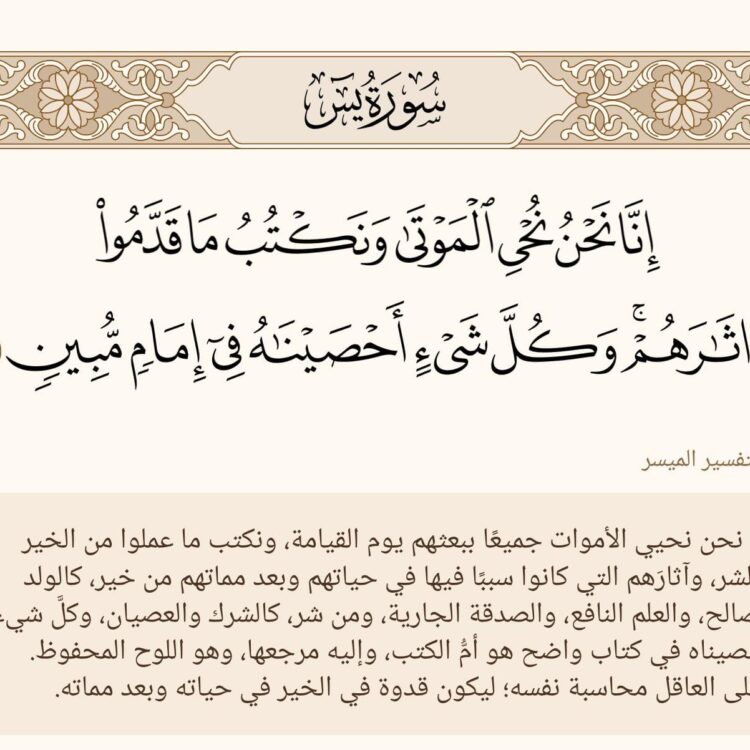 سُورَةُ يسٓ
إِنَّا نَحۡنُ نُحۡيِ ٱلۡمَوۡتَىٰ وَنَكۡتُبُ مَا قَدَّمُواْ
اثَٰرَهُمۡۚ وَكُلَّ شَيۡءٍ أَحۡصَيۡنَٰهُ فِيٓ إِمَامٖ مُّبِينٖ
تفسير الميسر
نحن نحيي الأموات جميعًا ببعثهم يوم القيامة، ونكتب ما عملوا من الخير
الشر، وآثارَهم التي كانوا سببًا فيها في حياتهم وبعد مماتهم من خير، كالولد
صالح، والعلم النافع، والصدقة الجارية، ومن شر، كالشرك والعصيان، وكلَّ شيء
صيناه في كتاب واضح هو أمُّ الكتب، وإليه مرجعها، وهو اللوح المحفوظ.
لى العاقل محاسبة نفسه؛ ليكون قدوة في الخير في حياته وبعد مماته.